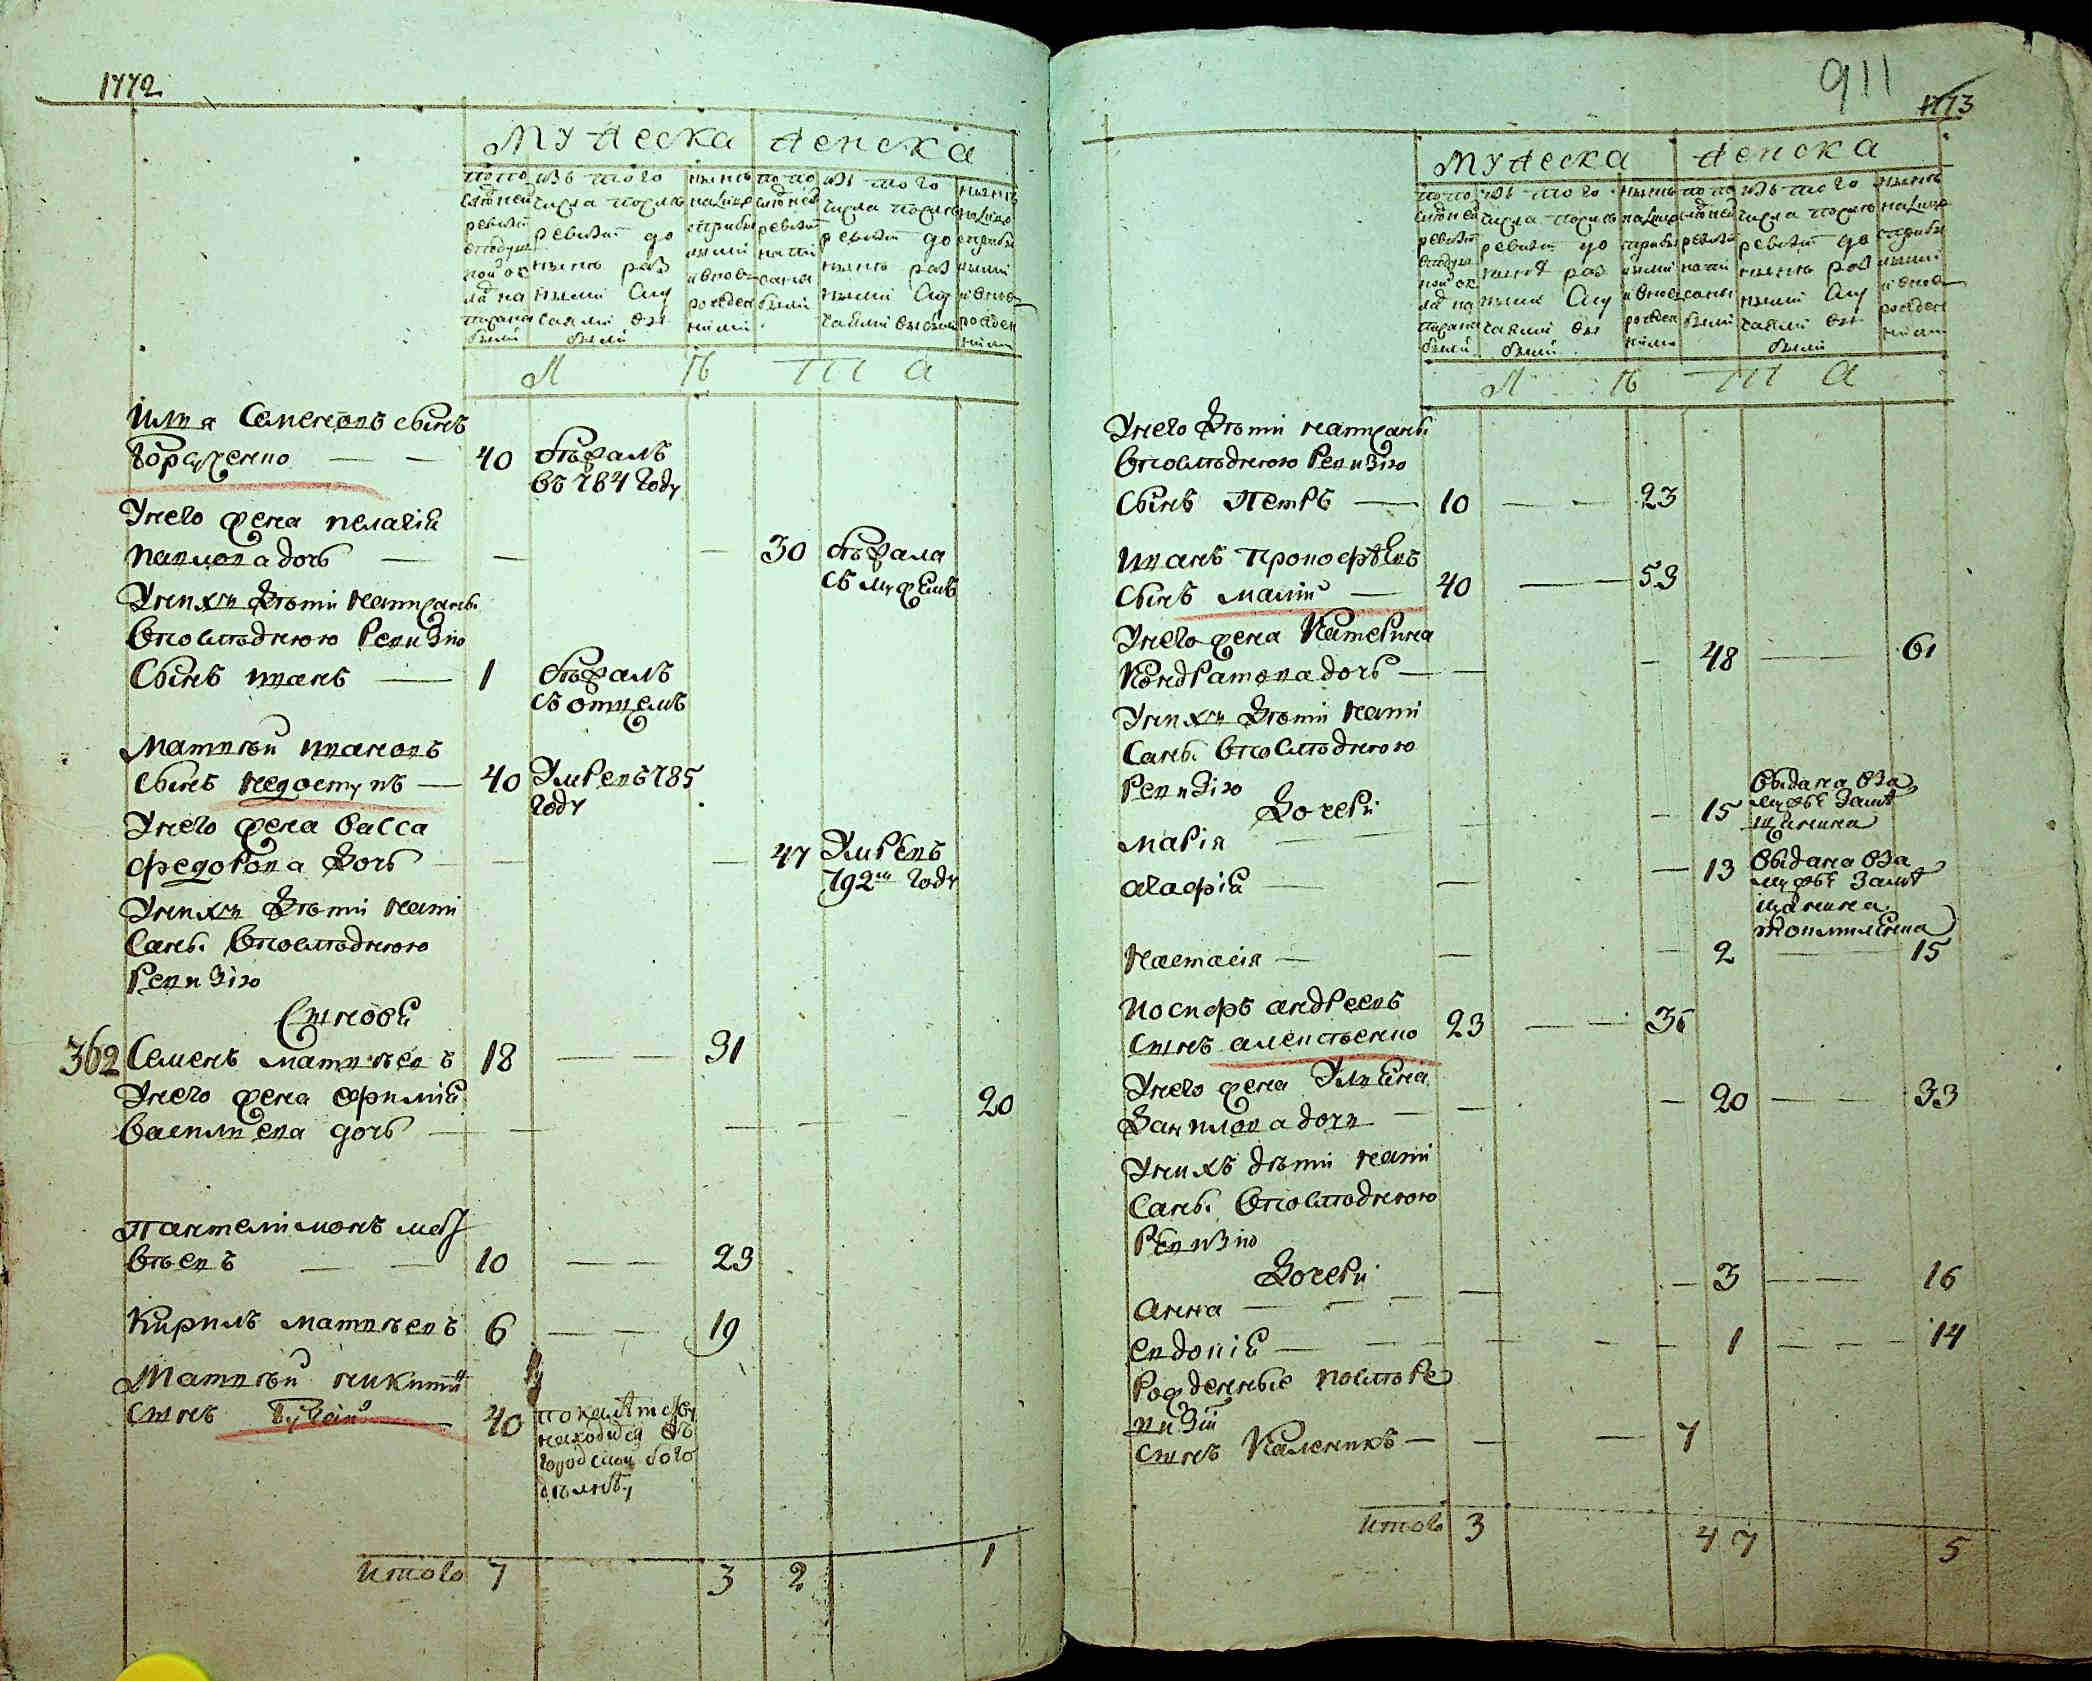 1772
мужеска женска
по по
следней
ревизии
в подуш
ной ок
лад на
писана
были
изъ того
числа после
ревизии до
ныне раз
ными слу
чаями вы
были
ныне
на лицо
с прибы
лыми
и внов
рожден
ными
по по
следней
ревизии
напи
саны
были
изъ того
числа после
ревизии до
ныне раз
ными слу
чаями выбыли
ныне
на лицо
с прибы
лыми
и внов
рожден
ными
Л Ѣ Т А
Илья Семеновъ сынъ
Борщенко 40 бежалъ
въ 784 году
У него жена Пелагия
Павлова дочь 30 бежала
съ мужемъ
У нихъ дѣти написан.
в последнюю ревизию
Сынъ иванъ 1 бежалъ
съ отцемъ
Матвѣй ивановъ
сынъ Недоступъ 40 Умре въ 785
году
У него жена васса
федорова дочь 47 Умре въ
792м году
У нихъ дѣти напи
саны в последнюю
ревизию
Сыновѣи
362 Семенъ матвѣевъ 18 31
У него жена ефимия
васильева дочь 20
Пантелимонъ мат
вѣевъ 10 23
Кирилъ матвѣевъ 6 19
Матвѣй никити
сынъ 40 по калечству
находится въ
городской бого
дѣльнѣ
Итого 7 3 2 1
911
1773
мужеска женска
по по
следней
ревизии
в подуш
ной ок
лад на
писана
были
изъ того
числа после
ревизии до
ныне раз
ными слу
чаями вы
были
ныне
на лицо
с прибы
лыми
и внов
рожден
ными
по по
следней
ревизии
напи
саны
были
изъ того
числа после
ревизии до
ныне раз
ными слу
чаями вы
были
ныне
на лицо
с прибы
лыми
и внов
рожден
ными
Л Ѣ Т А
У него дѣти написан.
в последнюю ревизию
Сынъ Петръ 10 23
Иванъ Прокофьевъ
сынъ малий 40 53
У него жена Катерина
Кондратова дочь 48 61
У нихъ дѣти напи
саны в последнюю
ревизию
Дочери
мария 15 выдана въ за
мужъе за
агафия 13 выдана въ за
мужъе за
настасия 2 15
иосифъ андреевъ
сынъ алексѣенко 23 36
У него жена Улияна
Данилова дочь 20 33
У нихъ дѣти напи
саны в последнюю
ревизию
Дочери
анна 3 16
евдокия 1 14
Рожденные после ре
визии
сынъ Каленикъ 7
Итого 3 4 7 5